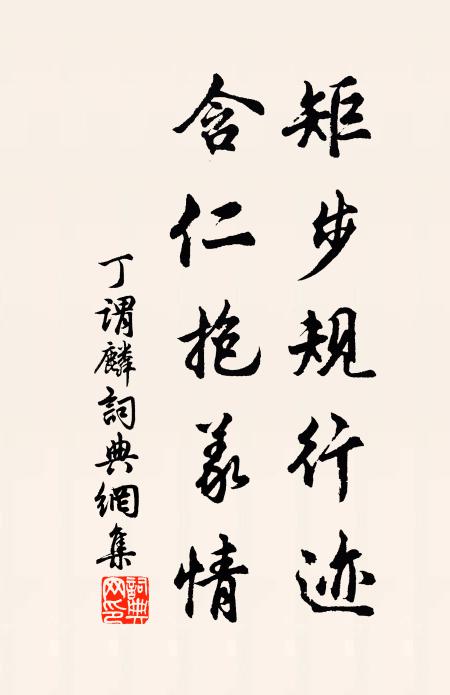 矩步規行迹
含仁抱義情
丁謂麟詞典網集
詞典網印